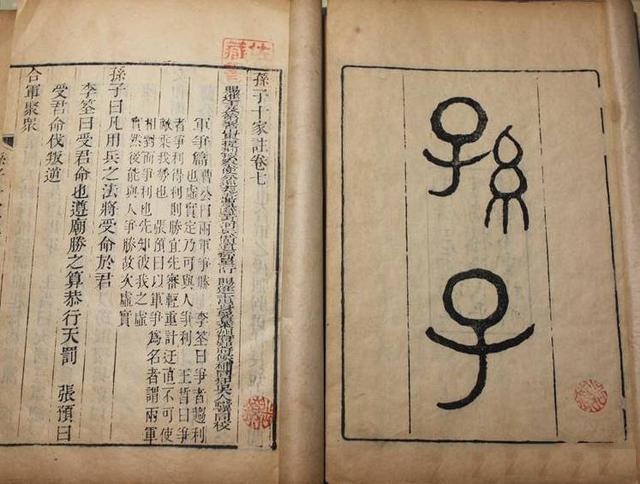 孫子
孫子十家註卷七
軍爭篇 曹公曰兩軍爭勝 李筌曰爭者趨利
也虛實定乃可與人爭利 王晳曰爭
者爭利得利則勝宜先審輕重計迂直不可使
敵乘我勞也 張預曰以軍爭爲名者謂兩軍
相對而爭利也先知彼我之虛
實然後能與人爭勝故次虛實
孫子曰凡用兵之法將受命於君
李筌曰受君命也遵廟勝之算恭行天罰 張預曰
受君命伐叛逆
合軍聚衆